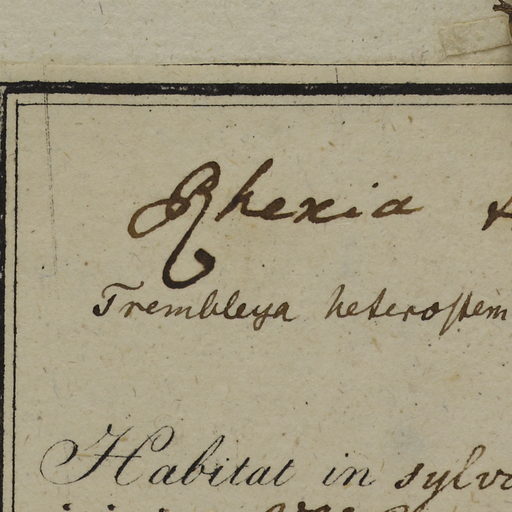 Rhexia
Trembleya heterostem
Habitat in sylv